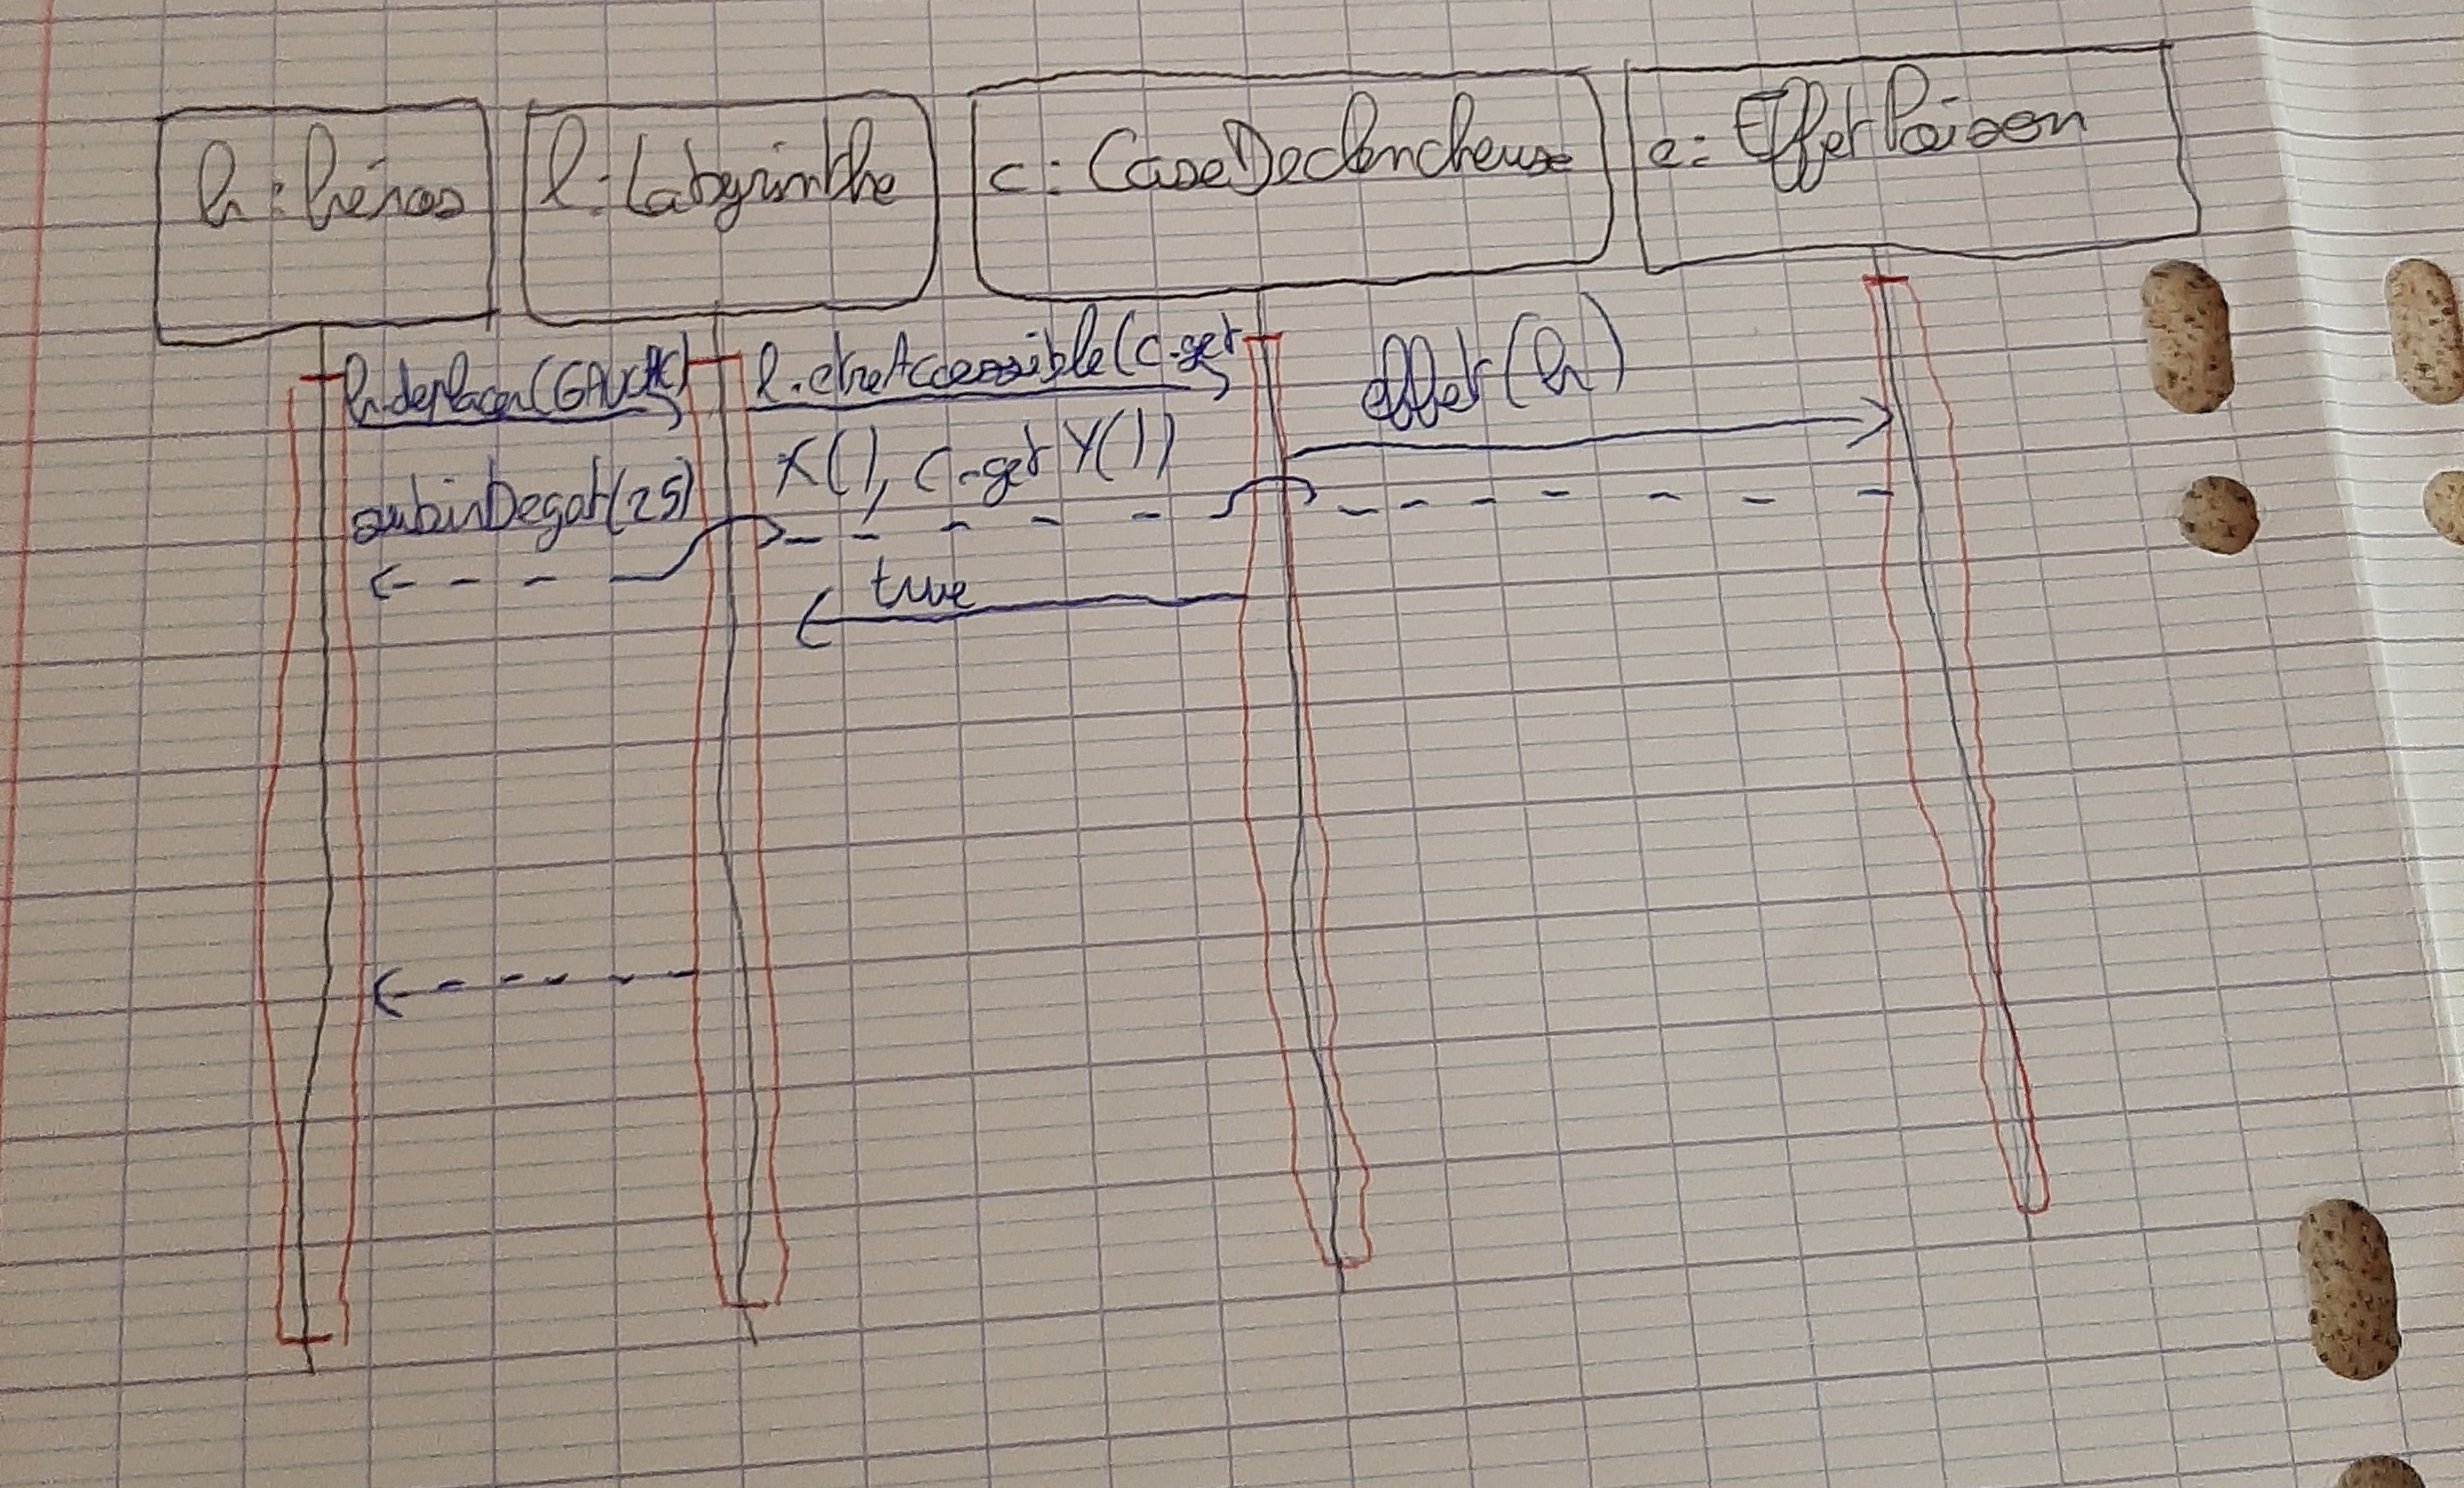 h : héros
l : Labyrinthe
c : CaseDeclencheuse
e : EffetPoison
h.deplacer(GAUCHE)
l.etreAccessible(c.get
X(), c.getY())
effet(h)
subirDegat(25)
true